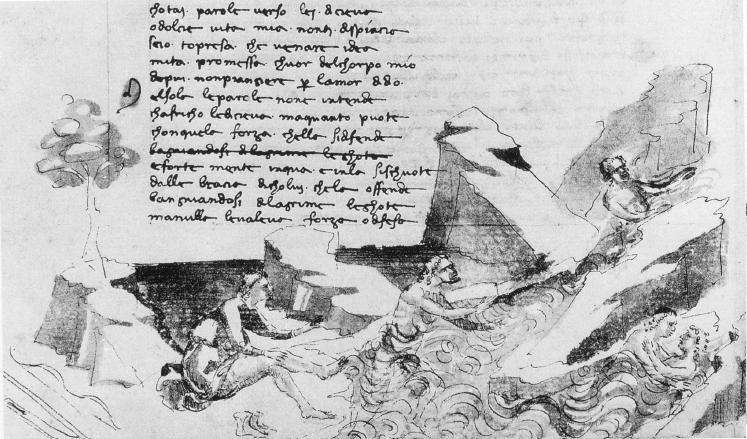 chotai. parole verso lej. diceva
o dolcie vita mia. nonti dispiacia
sero to presa. che venare idea
mita. promessa chuor delchorpo mio
depui. nonpiangiere p̱ lamor ddo.
elsole leparole none intende
chafricho lediceva. maquanto puote
chonquela forza. chella sidifende
bagniandosi dlagrime leghote
eforte mente inqua e inla sischuote
dalle bracia dicholui. chela offende
bangniandosi dlagrime leghote
manulla levaleva forza o difesa